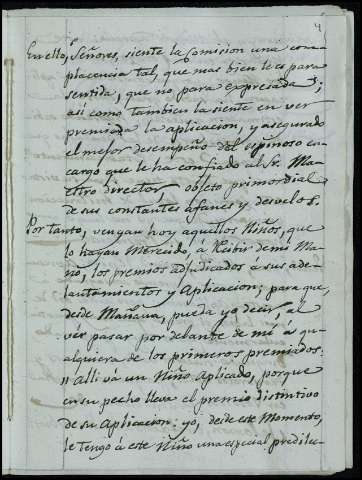 4
En ello, Señores, siente la Comision una com-
placencia tal, que mas bien le es para
sentida, que no para expresada;
asi como tambien la siente en ver
premiada la aplicacion, y asegurado
el mejor desempeño del espinoso en-
cargo que le ha confiado al Sr. Ma-
estro director, objeto primordial
de sus constantes afanes y desvelos.
Por tanto, vengan hoy aquellos Niños, que
lo hayan Merecido, á Recibir de mi Ma-
no, los premios adjudicados á sus ade-
lantamientos y Aplicacion; para que,
desde Mañana, pueda yo decir, al
vér pasar por delante de mi á qu-
alquiera de los primeros premiados:
"Alli vá un Niño Aplicado, porque
en su pecho lleva el premio distintivo
de su Aplicacion: yo, desde este Momento,
le tengo á este Niño una especial predilec-